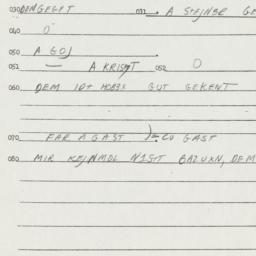 030 DEMGEGET 031 A STEJNER GE
040 0
050 A GOJ
051 — A KRIST 052 0
060 DEM IDT HOBX GUT GEKENT
070 FAR A GAST )= CU GAST
080 MIR KEJNMOL NIST BAZUXN, DEM